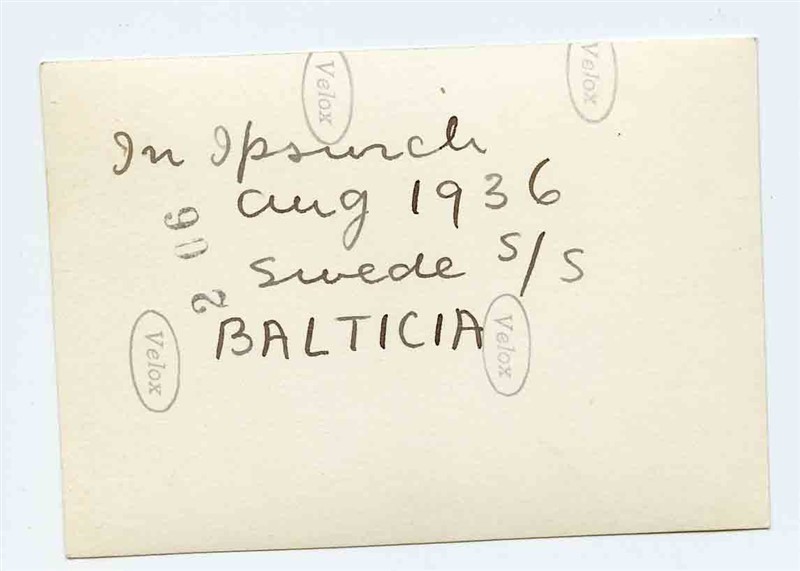 Velox
Velox
In Ipswich
aug 1936
90 2
Swede S/S
BALTICIA
Velox
Velox